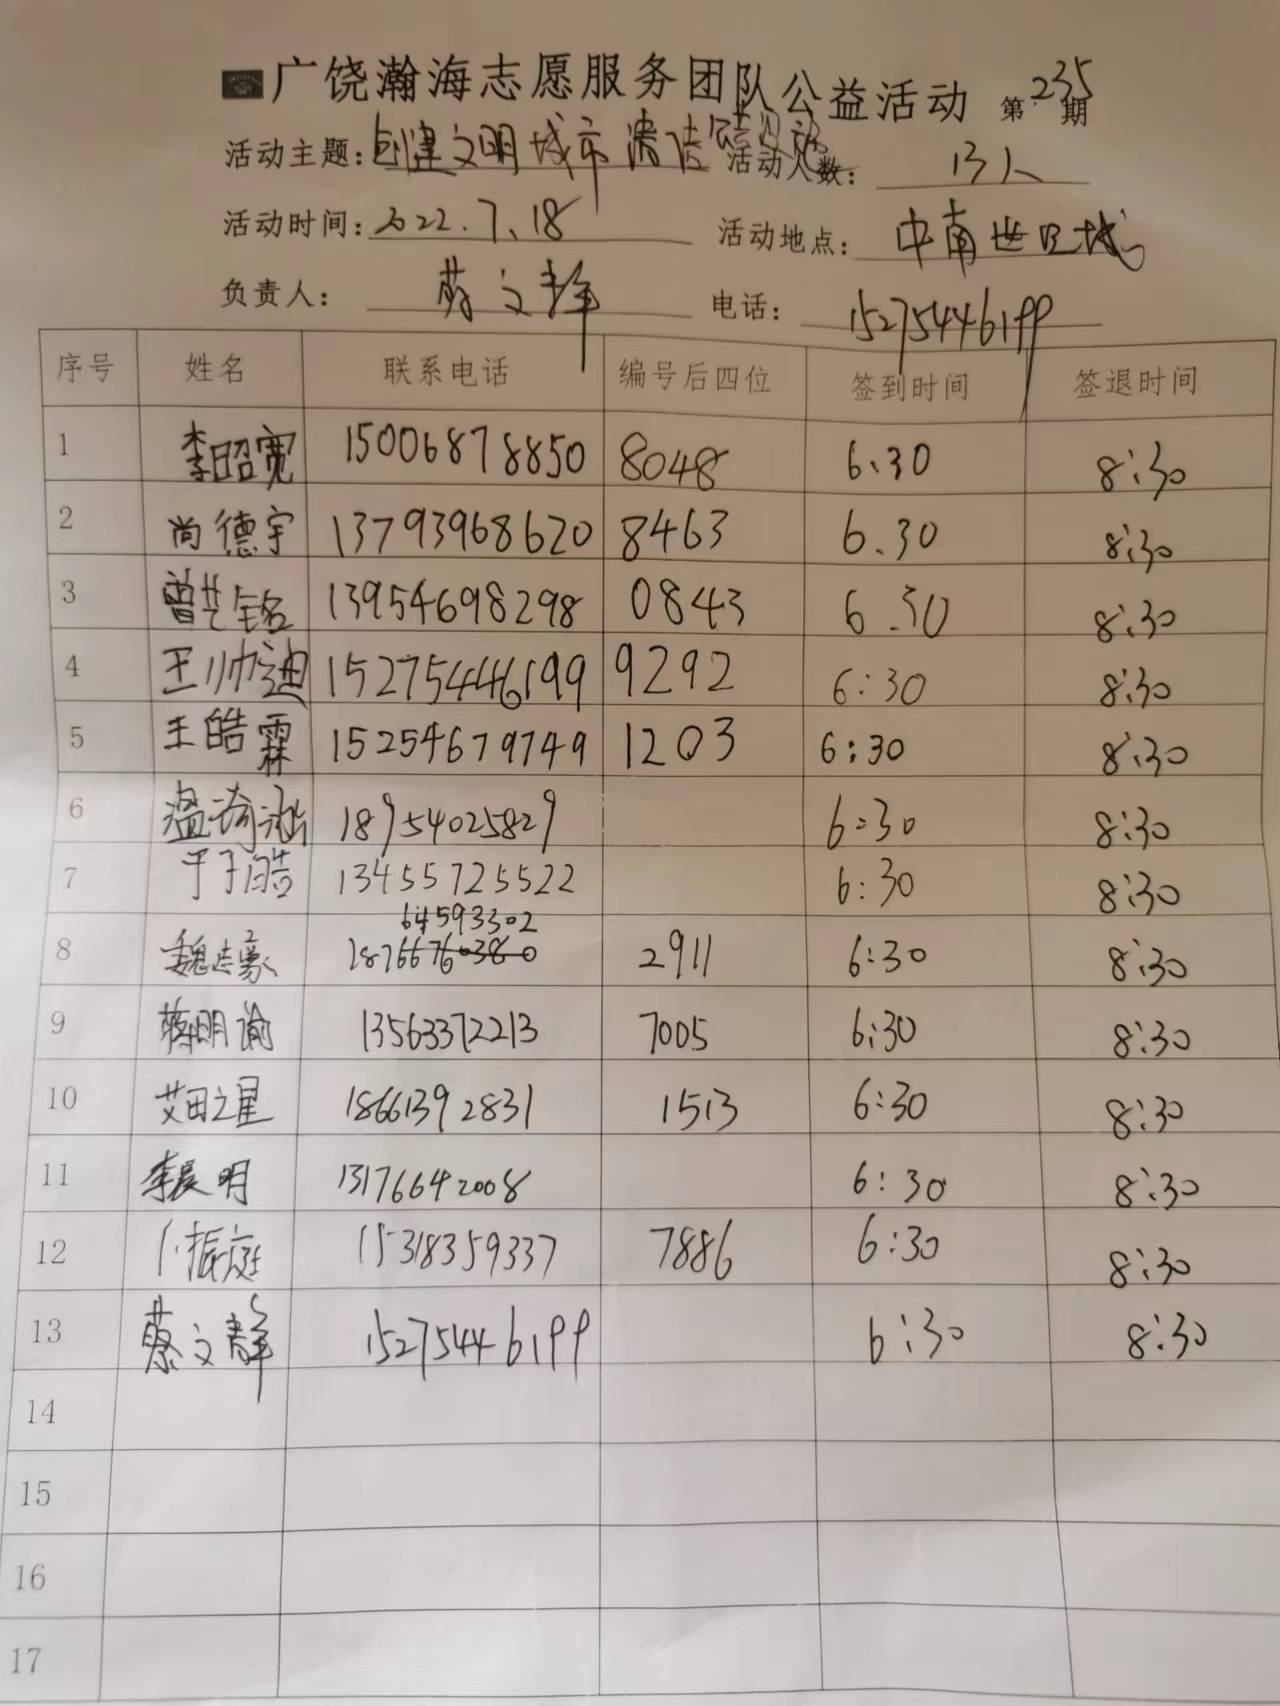 广饶瀚海志愿服务团队公益活动 第235期
活动主题：创建文明城市清洁 活动人数：13人
活动时间：2022.7.18 活动地点：中南世纪城
负责人：蔡文静 电话：15275446199
序号 姓名 联系电话 编号后四位 签到时间 签退时间
1 李昭宽 15006878850 8048 6.30 8:30
2 尚德宇 13793968620 8463 6.30 8:30
3 曾艺铭 13954698298 0843 6.30 8:30
4 王帅迪 15275446199 9292 6:30 8:30
5 王皓霖 15254679749 1203 6:30 8:30
6 温琦涵 18954025829 6:30 8:30
7 于子皓 13455725522 6:30 8:30
64593302
8 魏志豪 18766760380 2911 6:30 8:30
9 蒋明谕 13563372213 7005 6:30 8:30
10 艾田之星 18661392831 1513 6:30 8:30
11 李晨明 13176642008 6:30 8:30
12 卜振庭 15318359337 7886 6:30 8:30
13 蔡文静 15275446199 6:30 8:30
14
15
16
17